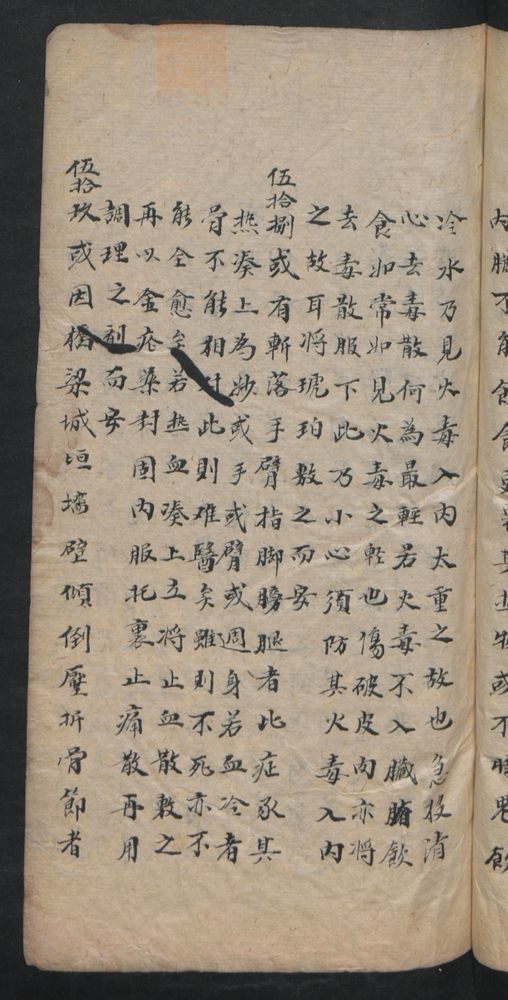 冷水乃見火毒入內太重之故也急投消
心去毒散何為最輕若火毒不入臟腑飲
食如常如見火毒之輕也傷破皮肉亦将
去毒散服下此乃小心須防其火毒入內
之故耳将琥珀敷之而安
伍拾捌或有斬落手臂指脚膀腿者此症承其
热凑上為妙或手或臂或週身若血冷者
骨不能相此則难醫矣雖則不死亦不
能全愈若热血凑上立将止血散敷之
再以金疮藥封固內服托裏止痛散再用
調理之剤而安
伍拾玖或因梁城垣墙壁傾倒壓折骨節者